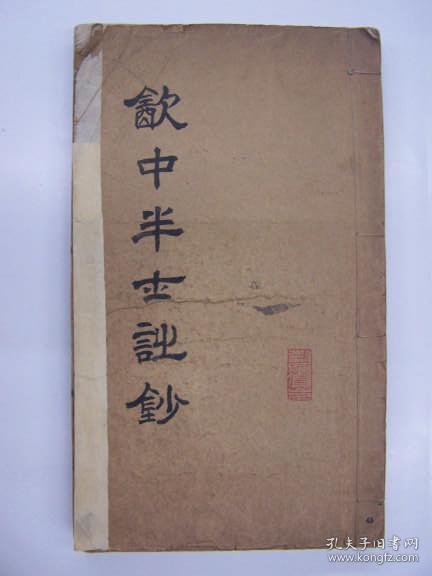 㱃中半士詩鈔
孔夫子旧书网
www.kongfz.com